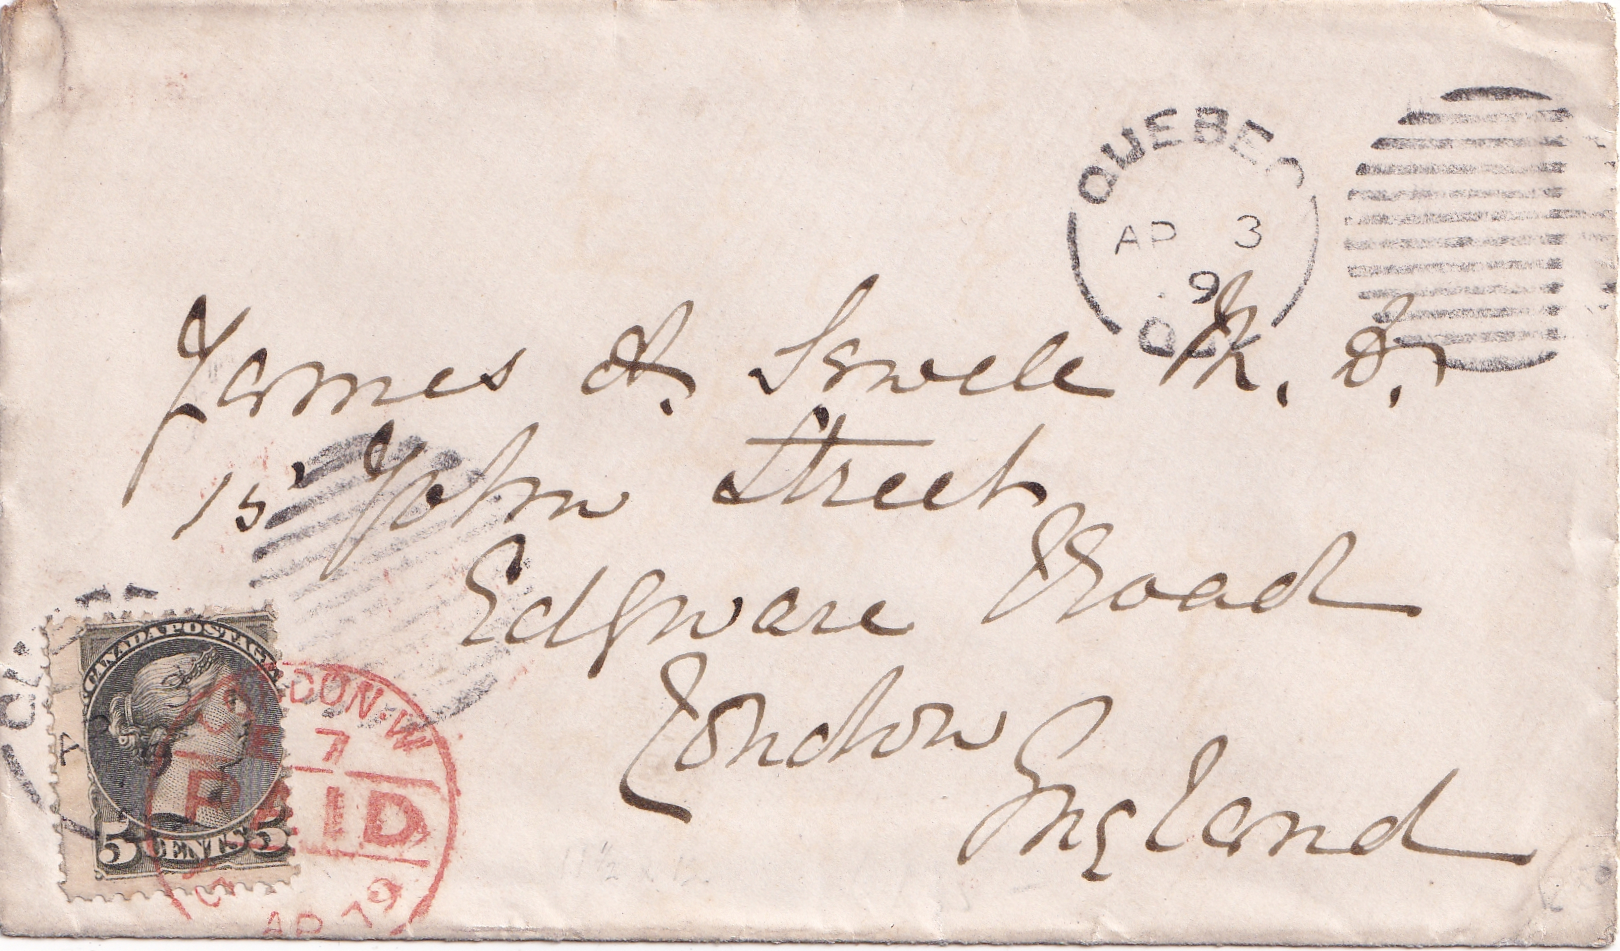 QUEBEC
AP 3
9
QUE
James A. Sewell M. D.
15 John Street
Edgware Road
London
England
CANADA POSTAGE
5 CENTS 5
LONDON.W
7
PAID
AP 79